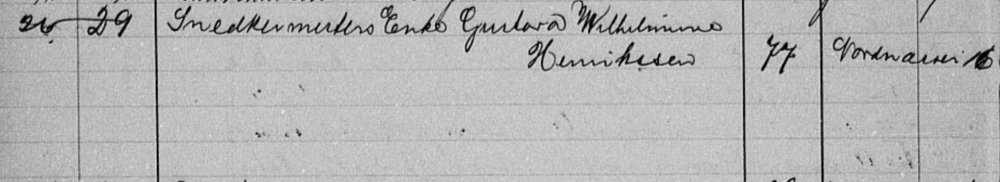 26 29 Snedkermesters Enke Gustava Wilhelmine
Henriksen 77 Nordnæsvei 16